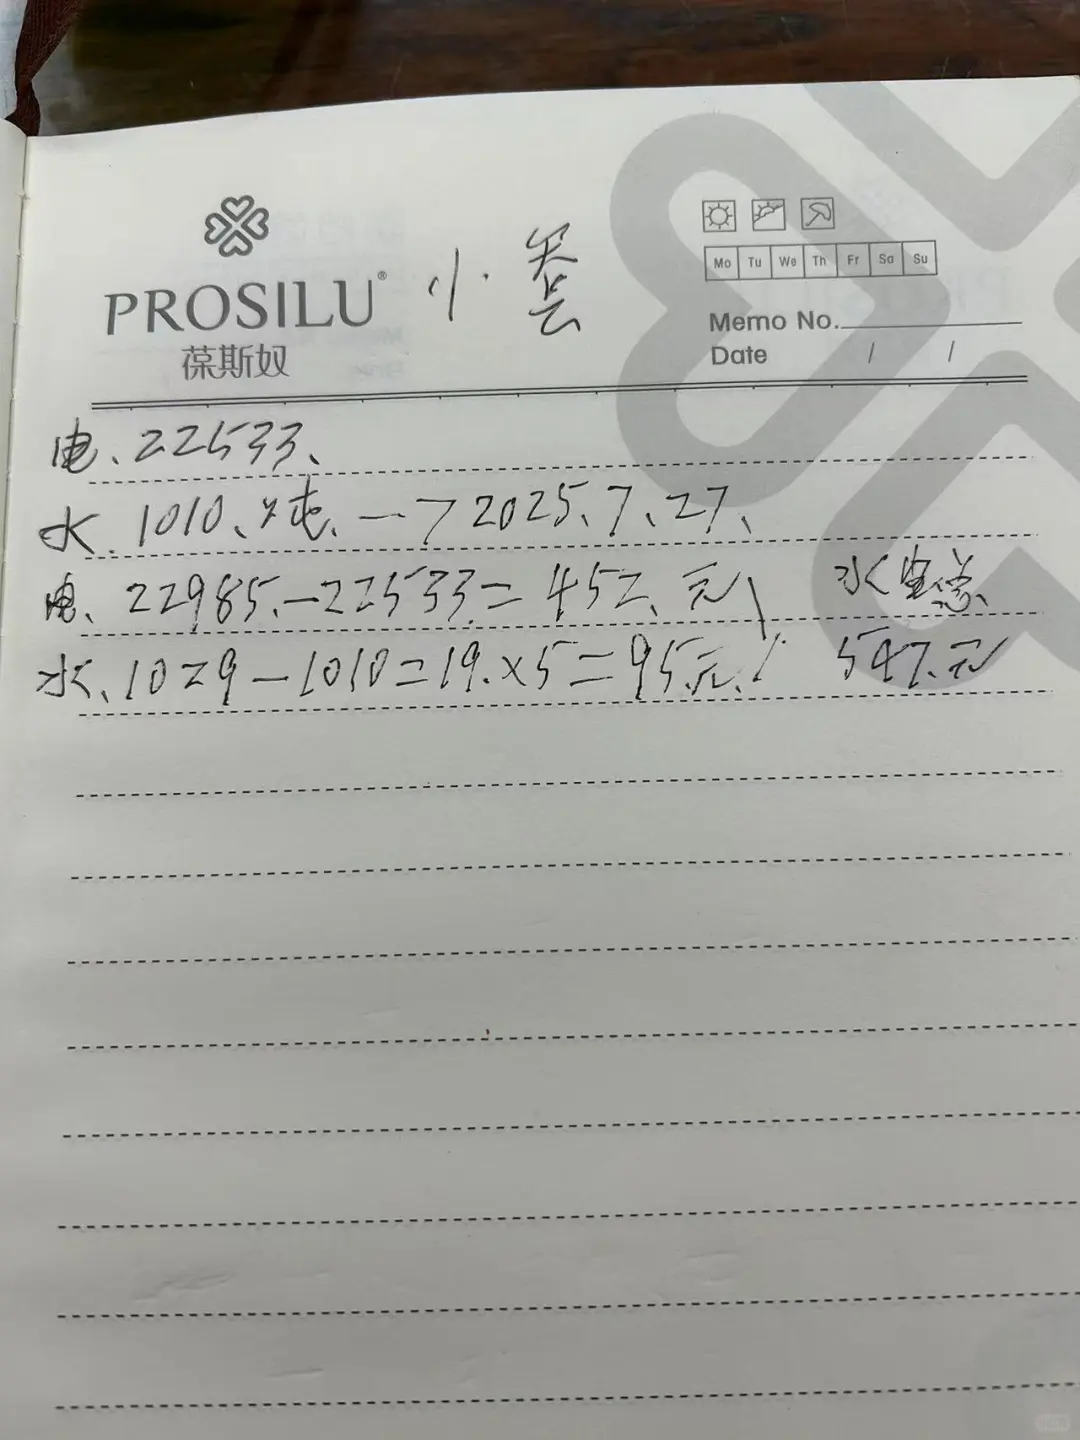 PROSILU®
葆斯奴
小
Mo Tu We Th Fr Sa Su
Memo No.
Date / /
电、22533、
水、1010、吨、—7 2025、7、27、
电、22985、—22533=452、元
水、1029—1010=19.×5=95元、
水电总、
547.元